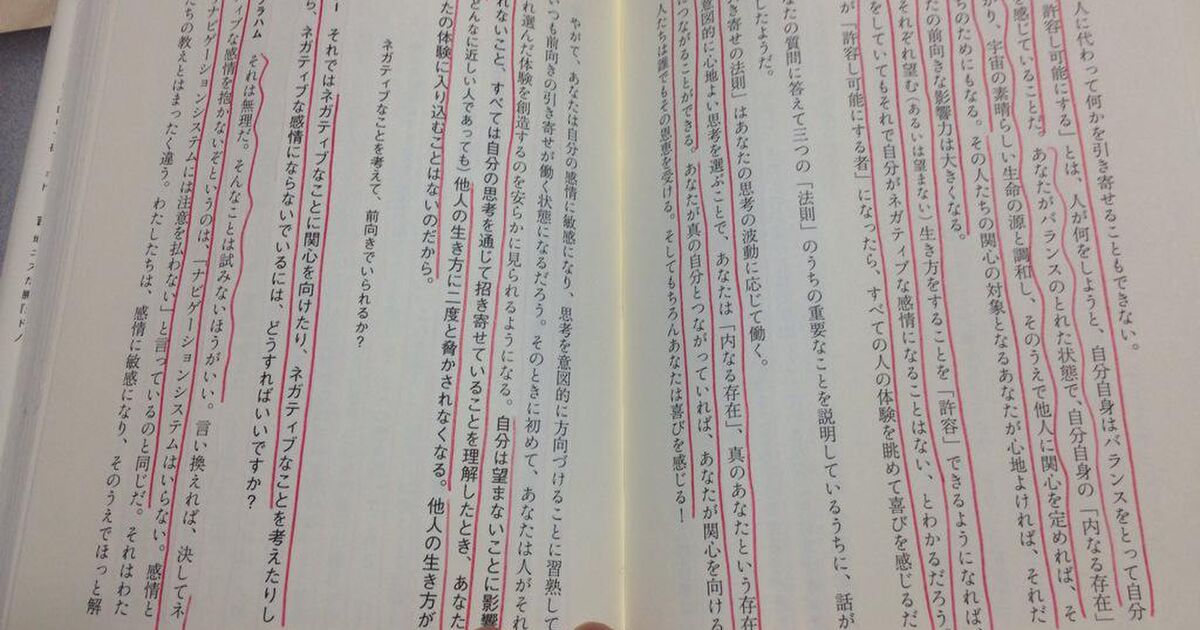 人に代わって何かを引き寄せることもできない。
「許容し可能にする」とは、人が何をしようと、自分自身はバランスをとって自分
を感じていることだ。あなたがバランスのとれた状態で、自分自身の「内なる存在」
がり、宇宙の素晴らしい生命の源と調和し、そのうえで他人に関心を定めれば、そ
ちのためにもなる。その人たちの関心の対象となるあなたが心地よければ、それだ
たの前向きな影響力は大きくなる。
それぞれ望む（あるいは望まない）生き方をすることを「許容」できるようになれば、
をしていてもそれで自分がネガティブな感情になることはない、とわかるだろう
が「許容し可能にする者」になったら、すべての人の体験を眺めて喜びを感じるだ
なたの質問に答えて三つの「法則」のうちの重要なことを説明しているうちに、話が
したようだ。
き寄せの法則」はあなたの思考の波動に応じて働く。
意図的に心地よい思考を選ぶことで、あなたは「内なる存在」、真のあなたという存在
につながることができる。あなたが真の自分とつながっていれば、あなたが関心を向ける
人たちは誰でもその恩恵を受ける。そしてもちろんあなたは喜びを感じる！
やがて、あなたは自分の感情に敏感になり、思考を意図的に方向づけることに習熟して
いつも前向きの引き寄せが働く状態になるだろう。そのときに初めて、あなたは人がそれ
れ選んだ体験を創造するのを安らかに見られるようになる。自分は望まないことに影響
れないこと、すべては自分の思考を通じて招き寄せていることを理解したとき、あなた
どんなに近しい人であっても）他人の生き方に二度と脅かされなくなる。他人の生き方が
たの体験に入り込むことはないのだから。
ネガティブなことを考えて、前向きでいられるか？
ー それではネガティブなことに関心を向けたり、ネガティブなことを考えたりし
ら、ネガティブな感情にならないでいるには、どうすればいいですか？
ブラハム それは無理だ。そんなことは試みないほうがいい。言い換えれば、決してネ
ィブな感情を抱かないぞというのは、「ナビゲーションシステムはいらない。感情と
ナビゲーションシステムには注意を払わない」と言っているのと同じだ。それはわた
たちの教えとはまったく違う。わたしたちは、感情に敏感になり、そのうえでほっと解